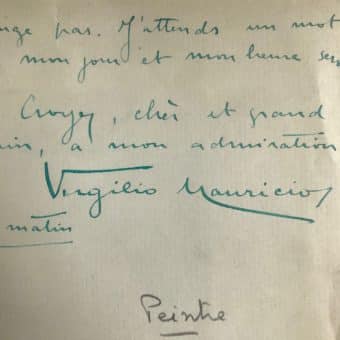 nge pas. J'attends un mot
mon jour et mon heure ser
Croyez, cher et grand
in, a mon admiration
Virgilio Mauricio
matin
Peintre